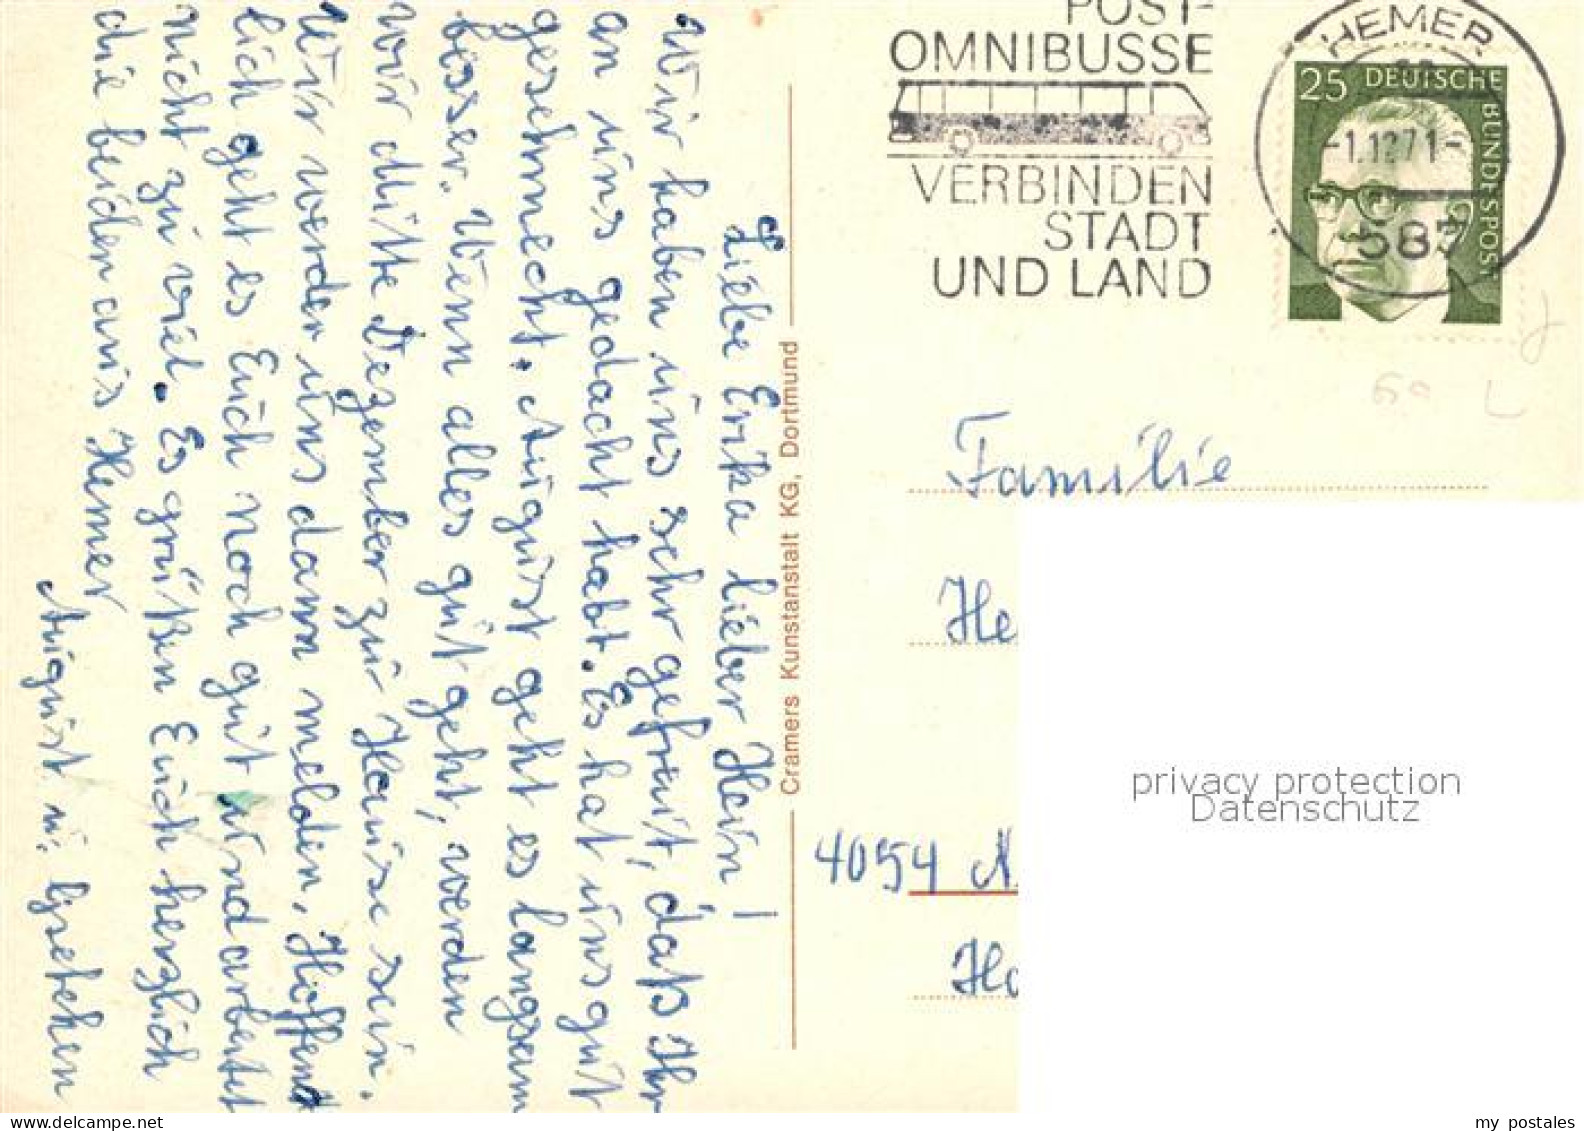 Liebe Erika lieber Hein!
Wir haben uns sehr gefreut, daß Ihr
an uns gedacht habt. Es hat uns gut
geschmeckt. August geht es langsam
besser. Wenn alles gut geht, werden
wir Mitte Dezember zu Hause sein.
Wir werden uns dann melden. Hoffent
lich geht es Euch noch gut und arbeitet
nicht zu viel. Es grüßen Euch herzlich
die beiden aus Hemer
August u.
Cramers Kunstanstalt KG, Dortmund
POST-
OMNIBUSSE
VERBINDEN
STADT
UND LAND
HEMER
-1.12.71-
587
25 DEUTSCHE
BUNDESPOST
Familie
He
4054 N
Ho
privacy protection
Datenschutz
www.delcampe.net
my postales